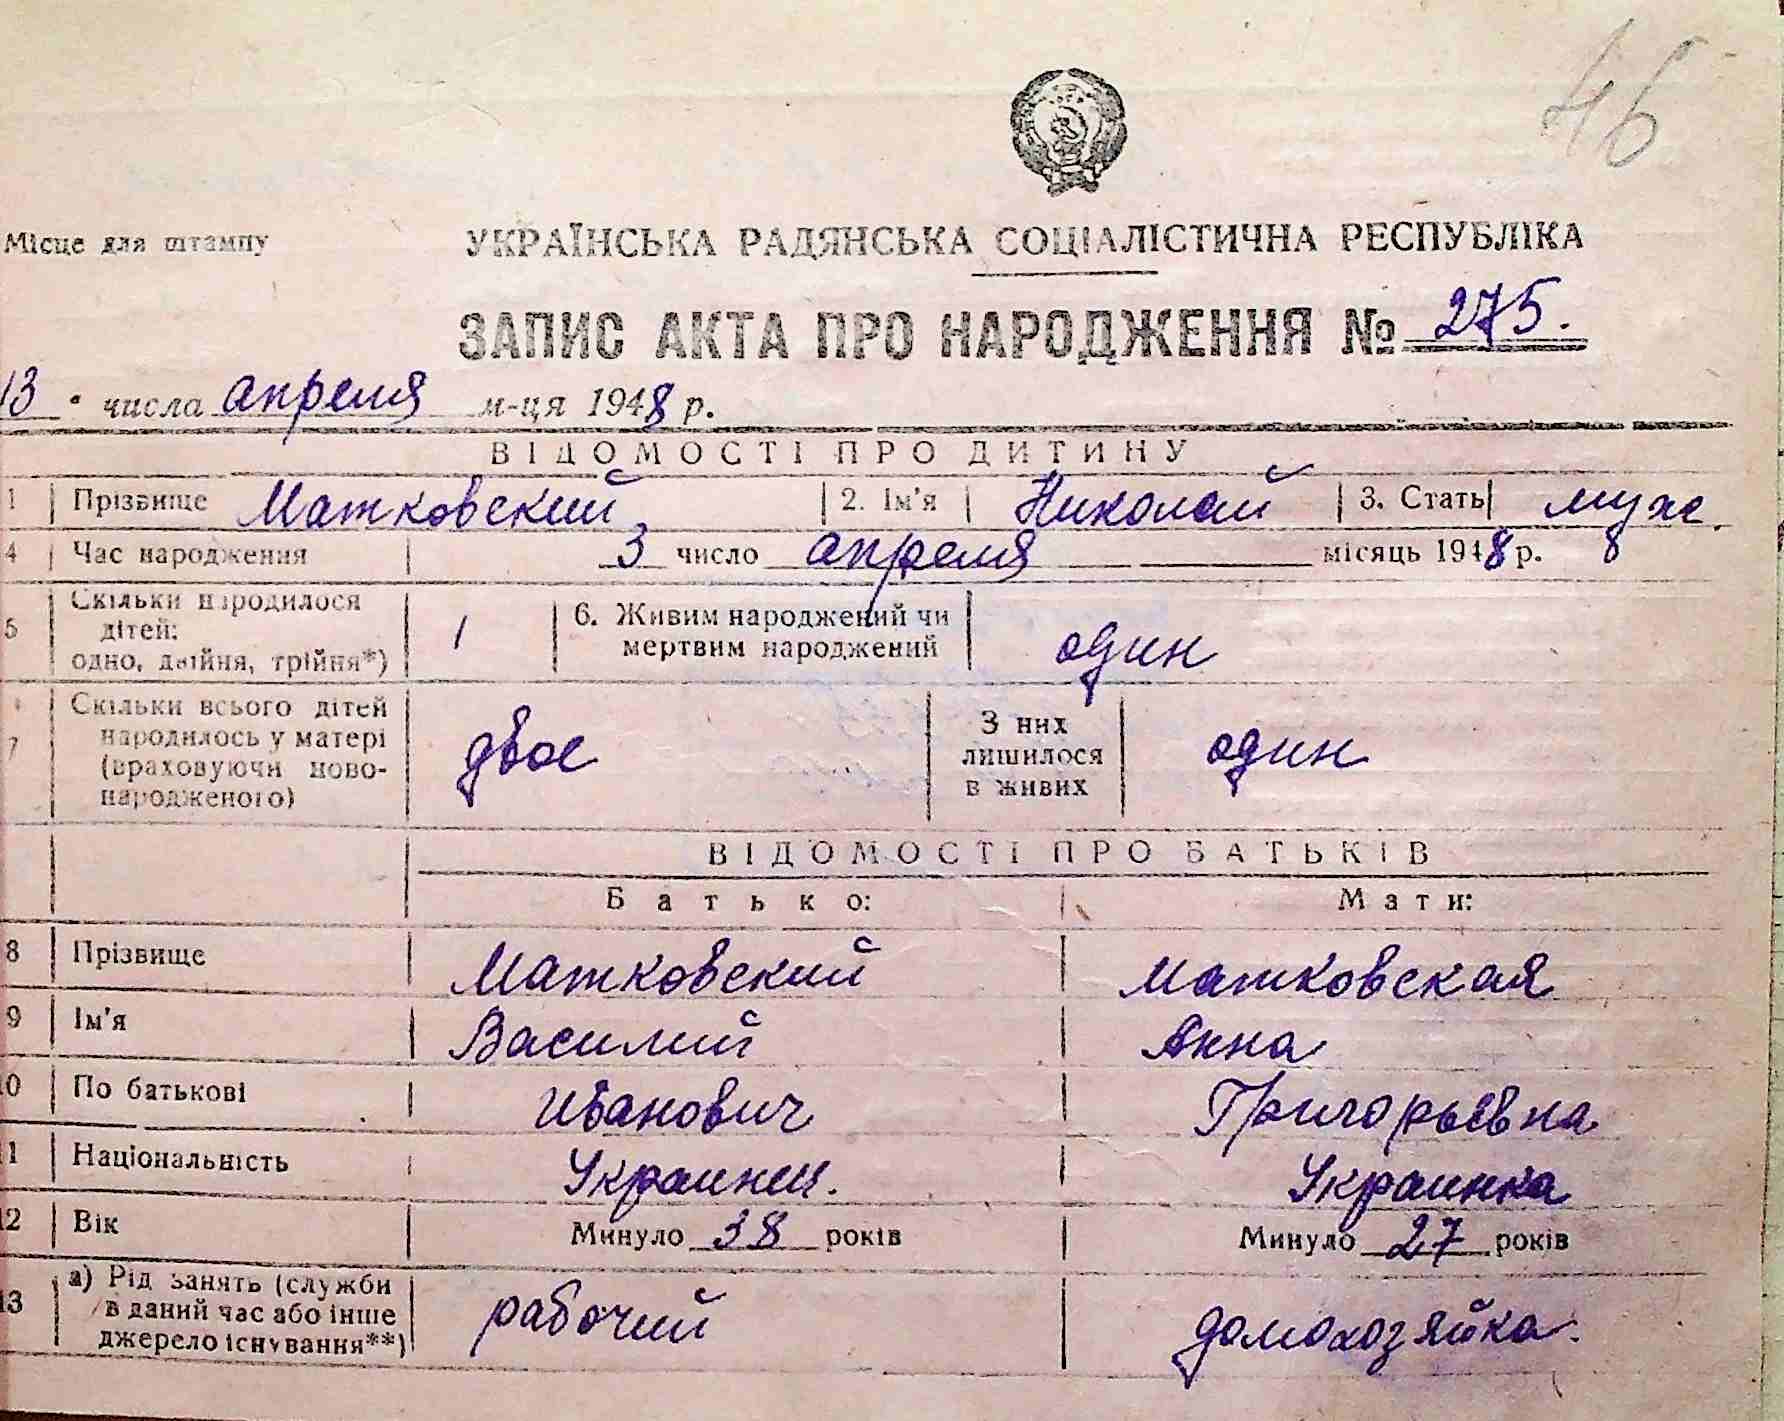 46
Місце для штампу
УКРАЇНСЬКА РАДЯНСЬКА СОЦІАЛІСТИЧНА РЕСПУБЛІКА
ЗАПИС АКТА ПРО НАРОДЖЕННЯ № 275.
13 числа апреля м-ця 1948 р.
ВІДОМОСТІ ПРО ДИТИНУ
1 Прізвище Матковский 2. Ім'я Николай 3. Стать муж.
4 Час народження 3 число апреля місяць 1948 р.
5 Скільки народилося дітей: одно, двійня, трійня*) 1 6. Живим народжений чи мертвим народжений один
7 Скільки всього дітей народилось у матері (враховуючи ново-народженого) двое З них лишилося в живих один
ВІДОМОСТІ ПРО БАТЬКІВ
Батько: Мати:
8 Прізвище Матковский Матковская
9 Ім'я Василий Анна
10 По батькові Иванович Григорьевна
11 Національність Украинец. Украинка
12 Вік Минуло 38 років Минуло 27 років
13 а) Рід занять (служби в даний час або інше джерело існування**) рабочий домохозяйка.